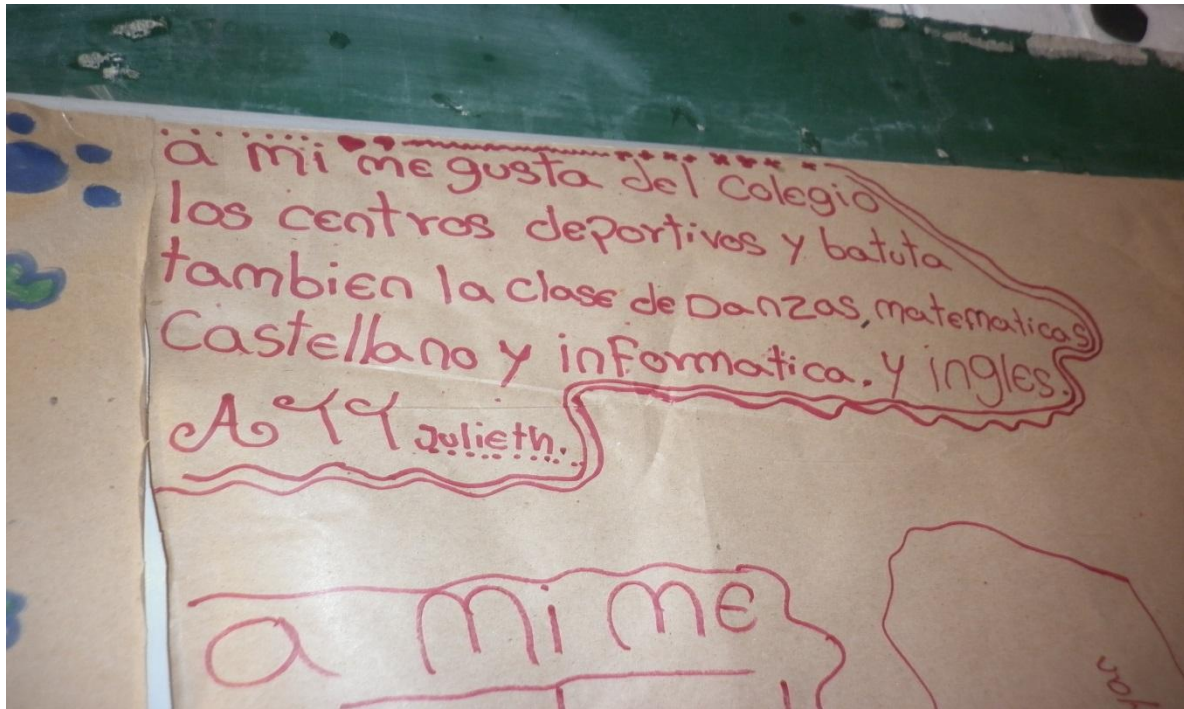 a mi me gusta del colegio
los centros deportivos y batuta
tambien la clase de Danzas, matematicas
Castellano y informatica. y ingles.
Julieth.
a mi me